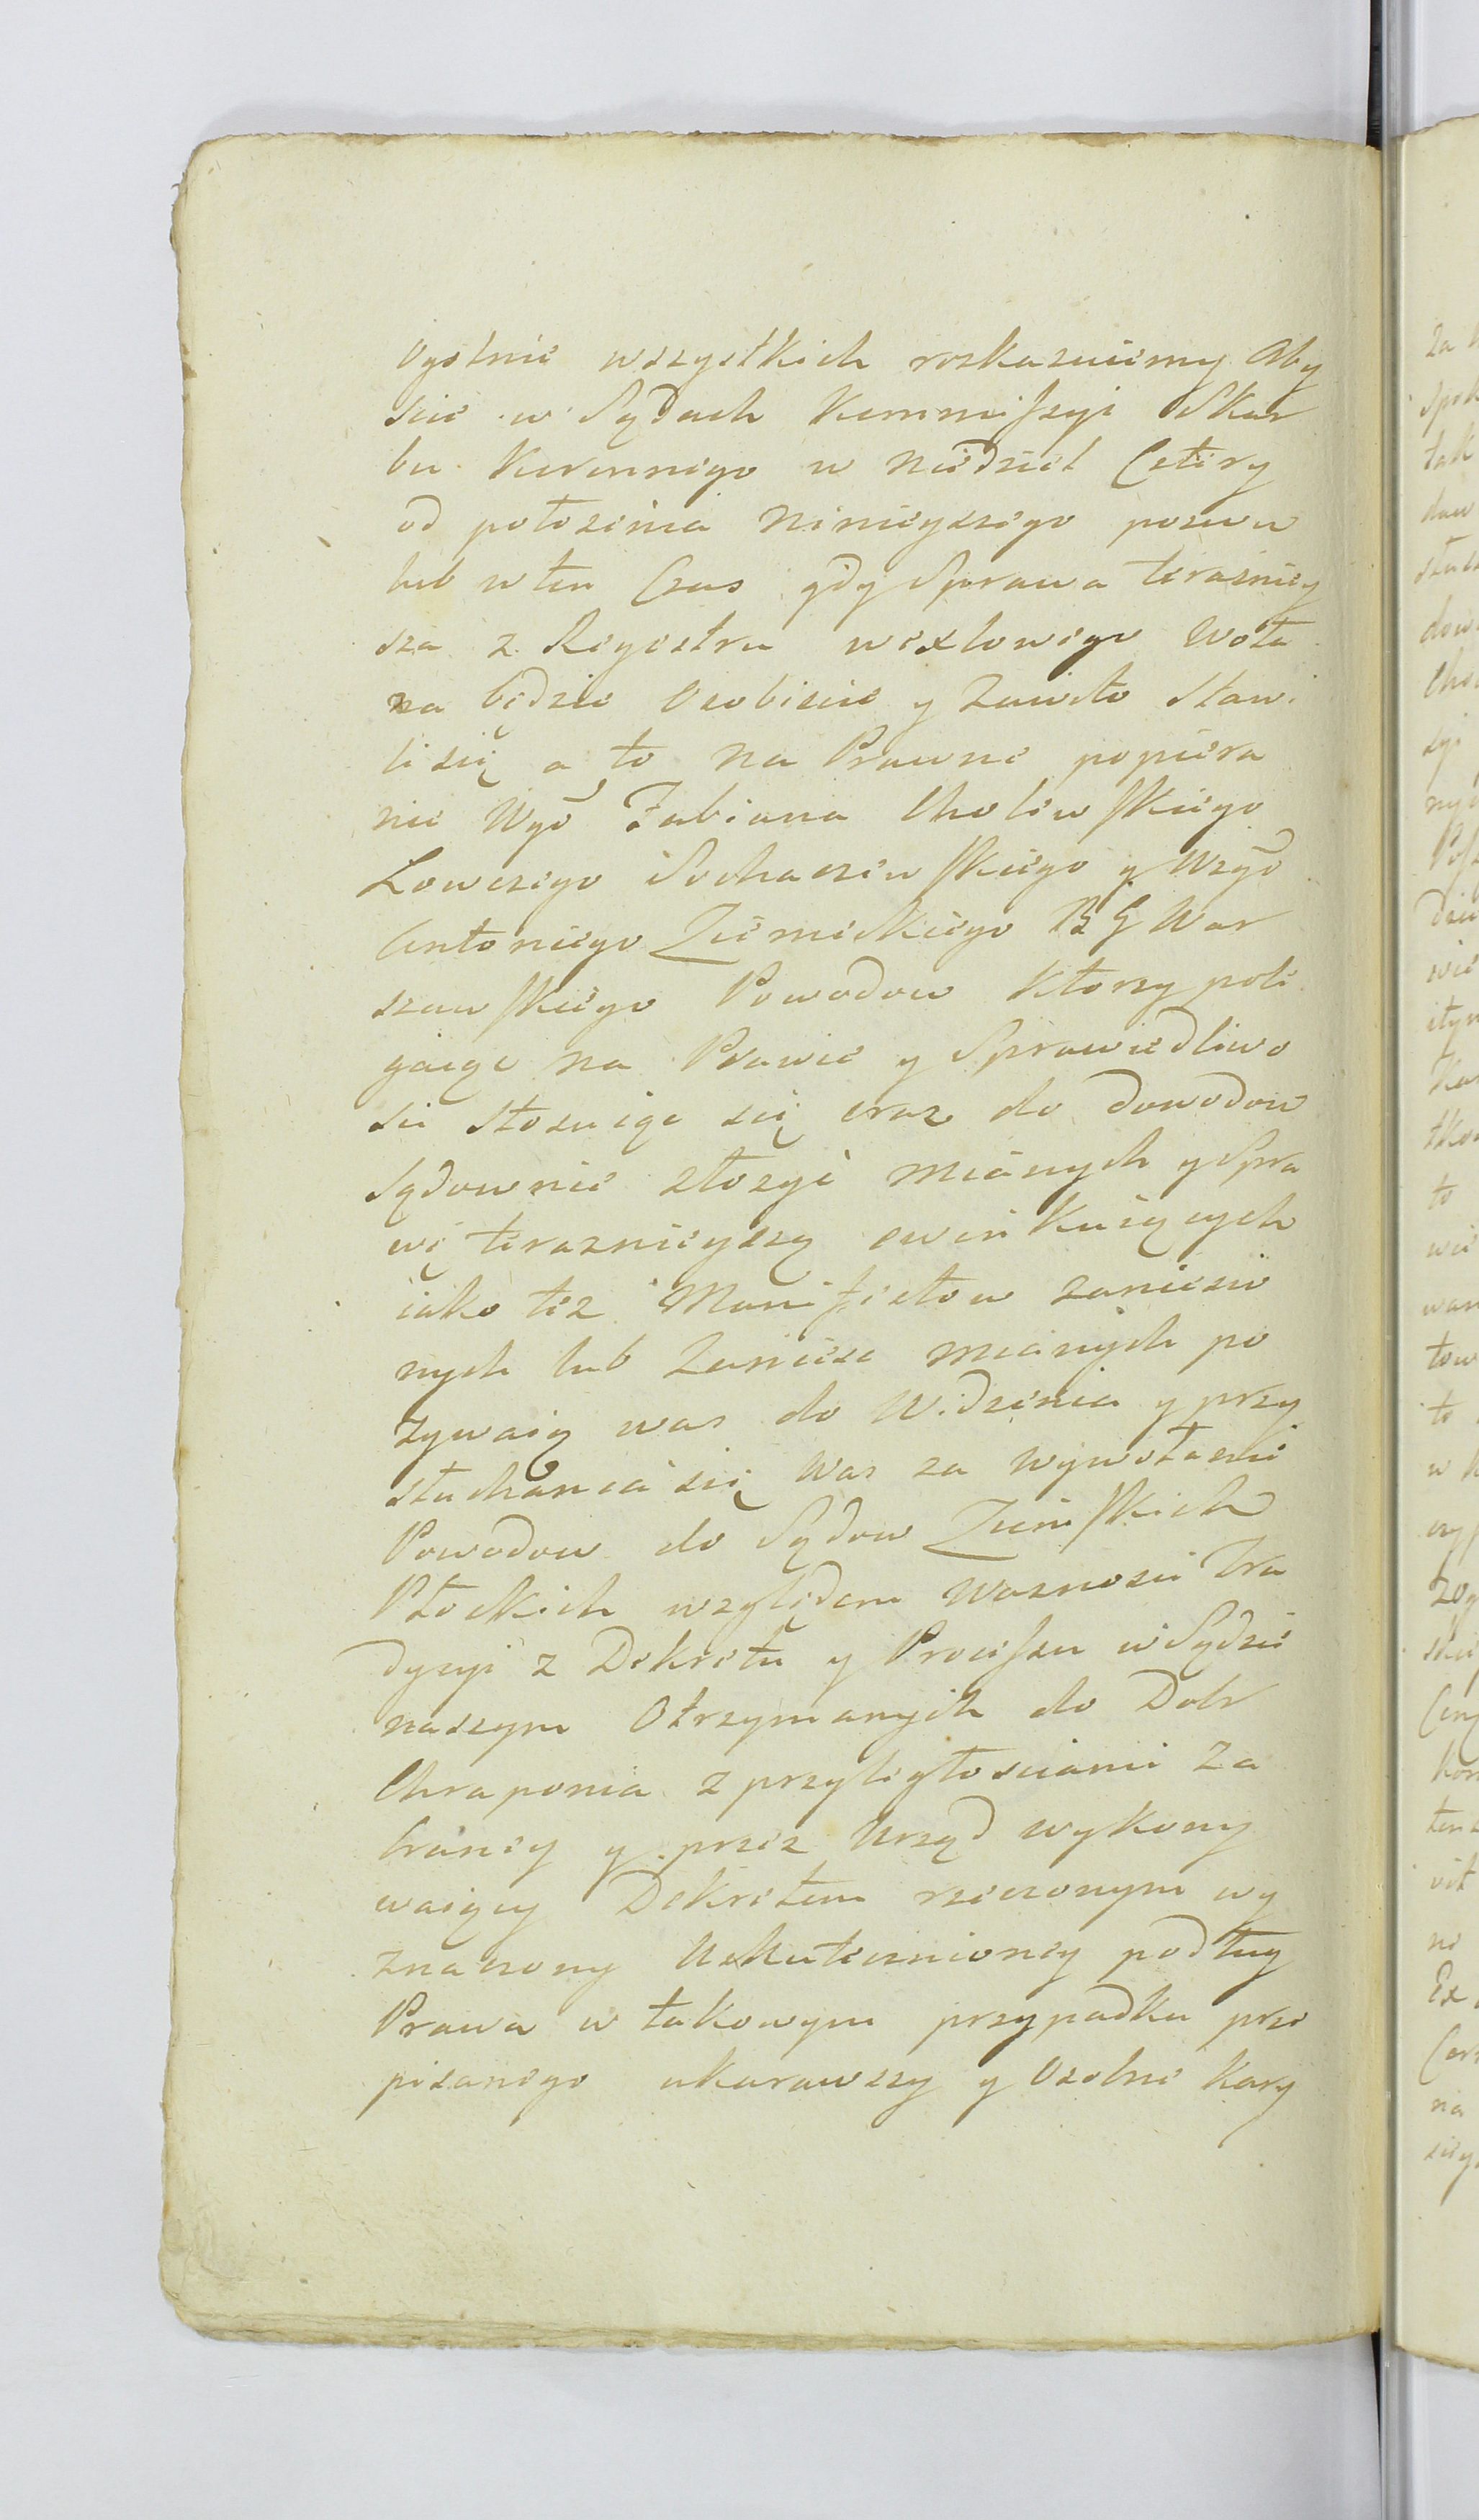 Ogolnie wszystkich rozkazuiemy Aby
scie w Sądach Kommissyi Skar
bu Koronnego w niedziel Cztery
od położenia ninieyszego pozwu
lub w ten Czas gdy Sprawa terazniey
sza z Regestru wexlowego Woła
na będzie Osobiscie y Zawito Stawi
li się a to na Prawne popiera
nie Wgo Fabiana Cholewskiego
Łowczego Sochaczewskiego y Wzgo
Antoniego Ziemeckiego B G War
szawskiego Powodow Ktorzy pole
gaiąc na Prawie y Sprawiedliwo
sci stosuiąc się oraz do dowodow
Sądownie złożyć mianych y Spra
wę teraznieyszą ewinkuiących
iako też Manifestow zaniesio
nych lub Zanieść mianych po
zywaią was do Widzenia y przy
słuchania się Was za wywołanie
Powodow do Sądow Ziemskich
Płockich względem Waznosci Tra
dycyi z Dekretu y Processu w Sądzie
naszym Otrzymanych do Dobr
Chraponia z przyległosciami Za
braney y przez Urząd wykony
waiący Dekretem rzeczonym wy
znaczony Uskutecznioney podług
Prawa w takowym przypadku prze
pisanego ukarawszy y Osobne Kary